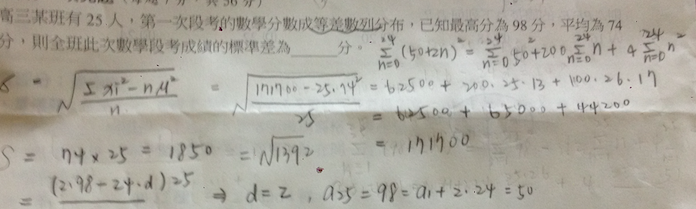 高三某班有 25 人，第一次段考的數學分數成等差數列分布，已知最高分為 98 分，平均為 74
分，則全班此次數學段考成績的標準差為＿＿＿分。
\sum_{n=0}^{24} (50+2n)^2 = \sum_{n=0}^{24} 50^2 + 200 \sum_{n=0}^{24} n + 4 \sum_{n=0}^{24} n^2
S = \sqrt{\frac{\sum xi^2 - nμ^2}{n}} = \sqrt{\frac{171700 - 25·74^2}{25}} = 62500 + 200·25·13 + 100·26·17
= 62500 + 65000 + 44200
S = 74×25 = 1850 = \sqrt{1392} = 171700
= \frac{(2·98-24·d)25}{} ⇒ d=2, a25 = 98 = a1 + 2·24 = 50